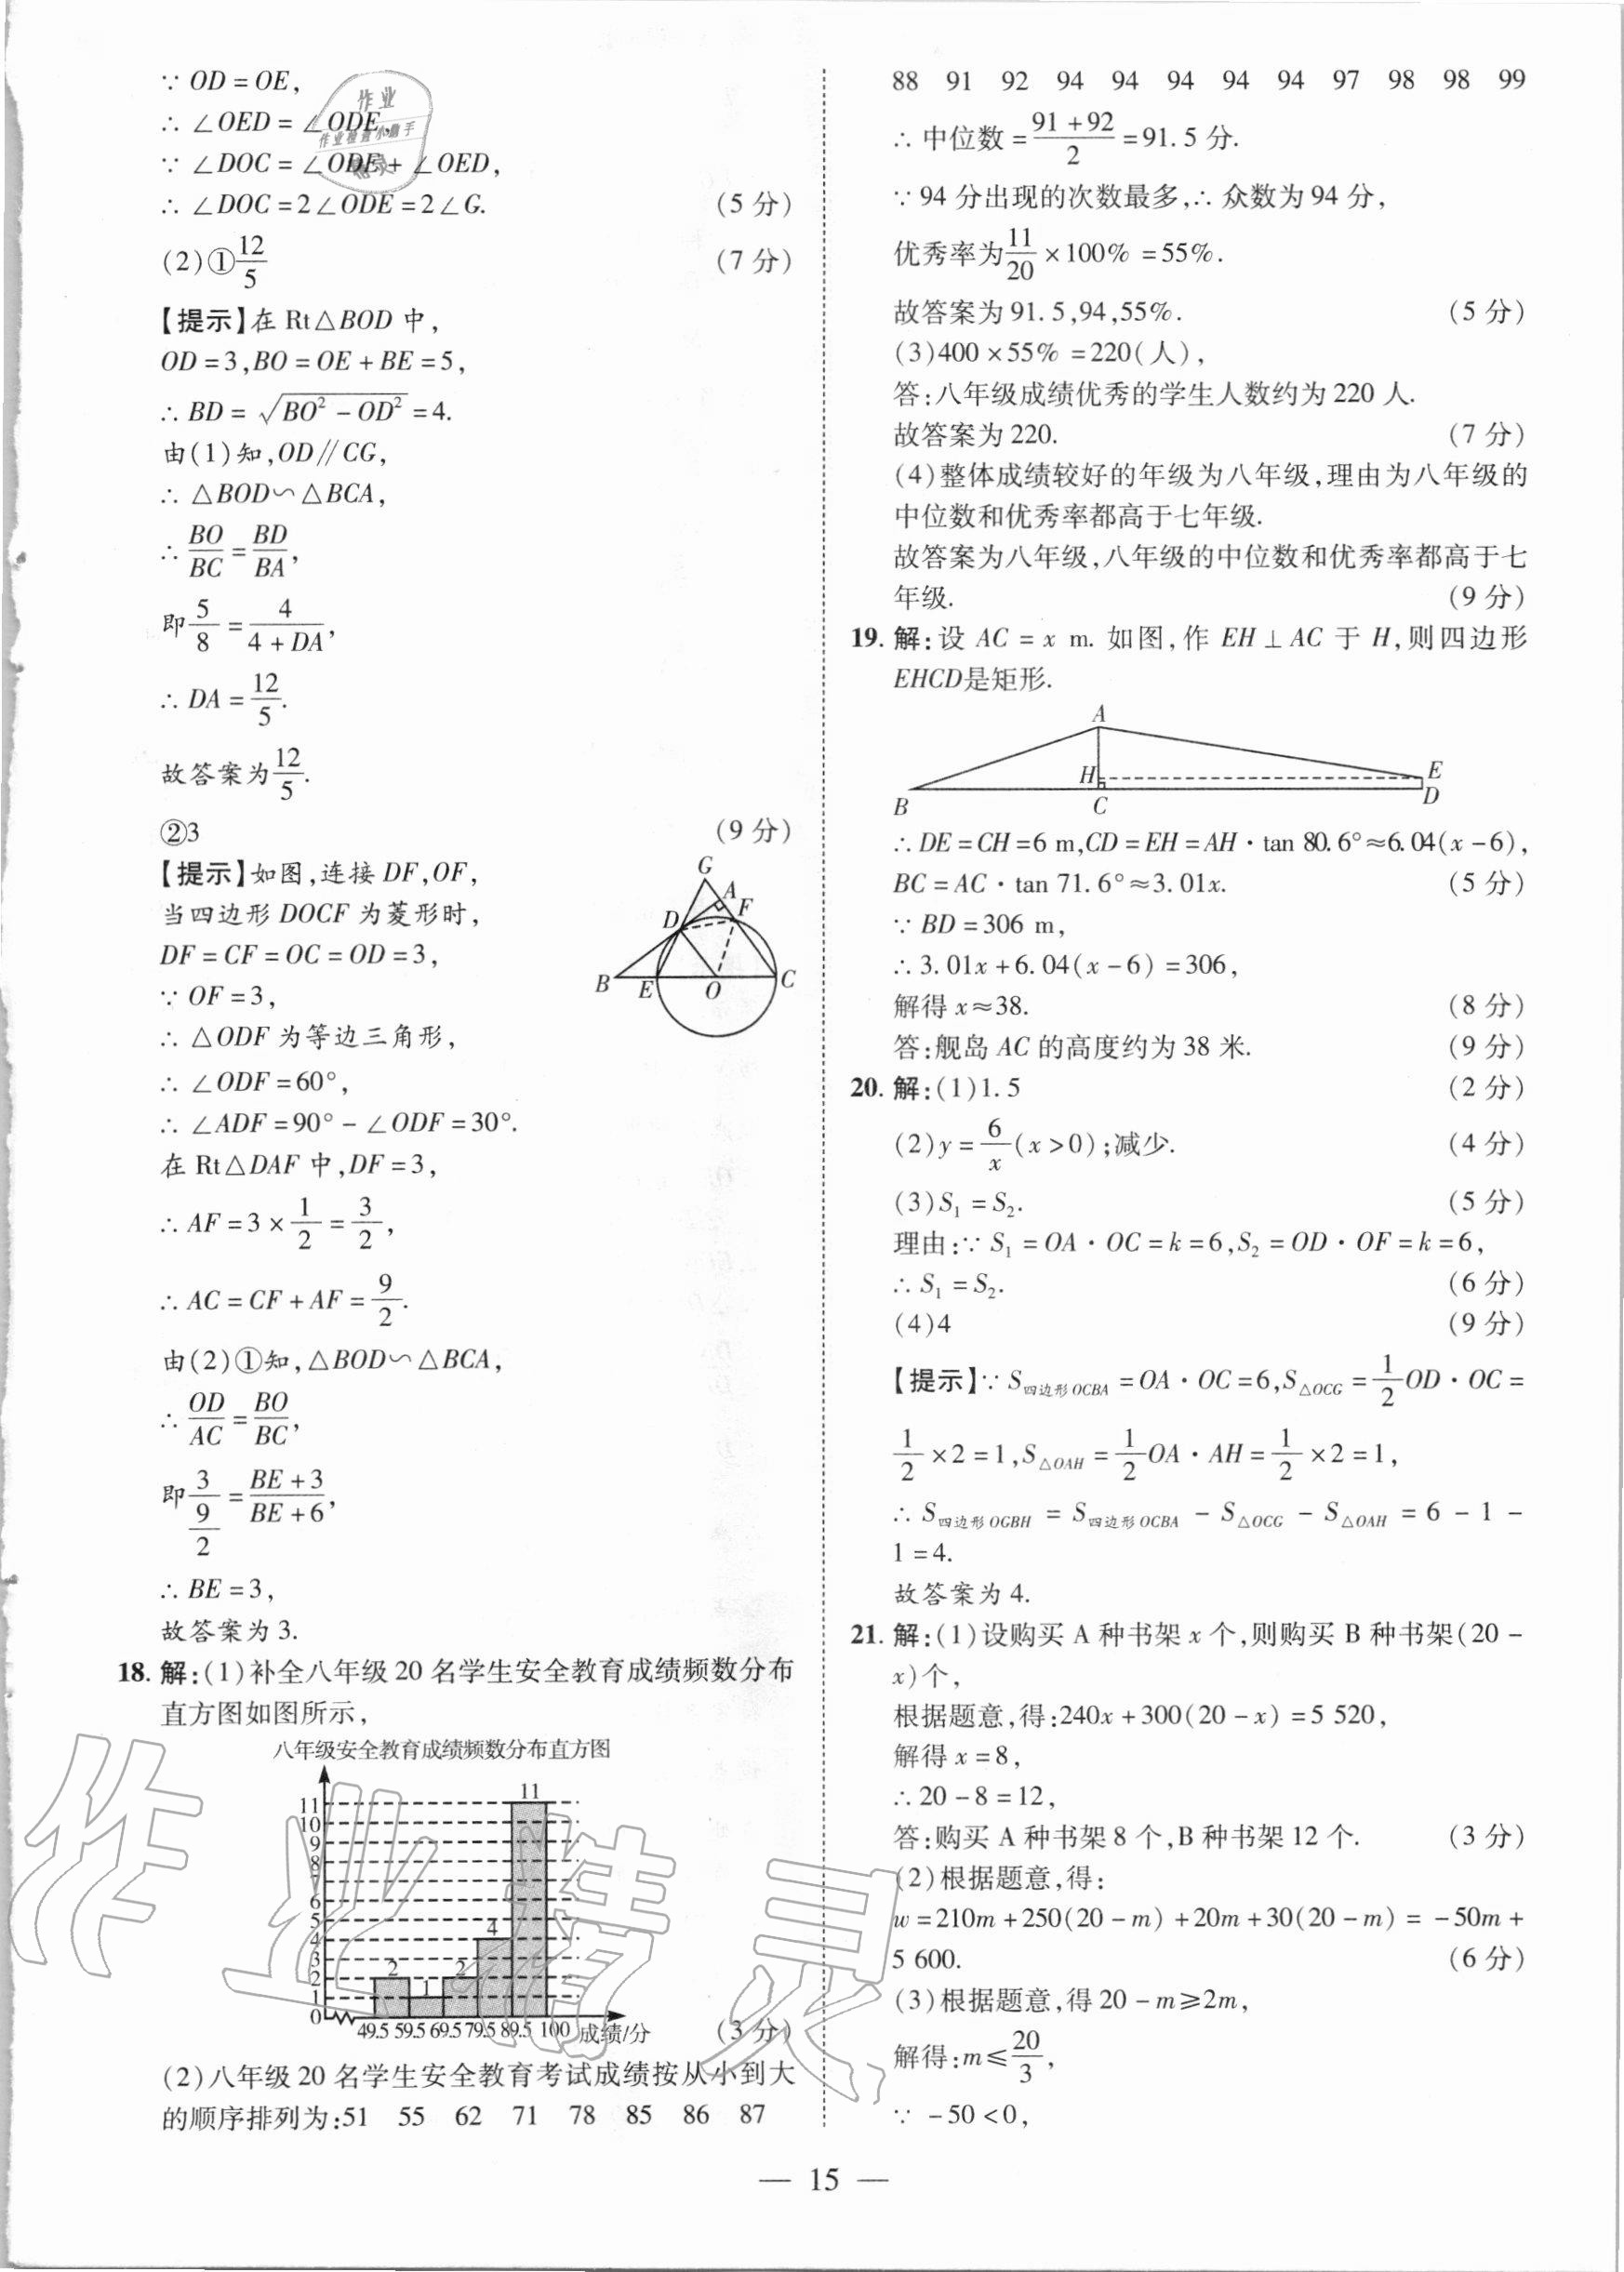 ∵ OD = OE,
∴ ∠OED = ∠ODE,
∵ ∠DOC = ∠ODE + ∠OED,
∴ ∠DOC = 2∠ODE = 2∠G. (5 分)
(2)①12/5 (7 分)
【提示】在 Rt△BOD 中,
OD = 3,BO = OE + BE = 5,
∴ BD = √(BO² − OD²) = 4.
由(1)知,OD∥CG,
∴ △BOD∽△BCA,
∴ BO/BC = BD/BA,
即 5/8 = 4/(4 + DA),
∴ DA = 12/5.
故答案为 12/5.
②3 (9 分)
【提示】如图,连接 DF,OF,
当四边形 DOCF 为菱形时,
DF = CF = OC = OD = 3,
∵ OF = 3,
∴ △ODF 为等边三角形,
∴ ∠ODF = 60°,
∴ ∠ADF = 90° − ∠ODF = 30°.
在 Rt△DAF 中,DF = 3,
∴ AF = 3 × 1/2 = 3/2,
∴ AC = CF + AF = 9/2.
由(2)①知,△BOD∽△BCA,
∴ OD/AC = BO/BC,
即 3/(9/2) = (BE + 3)/(BE + 6),
∴ BE = 3,
故答案为 3.
G
A
F
D
B
E
O
C
18. 解:(1)补全八年级 20 名学生安全教育成绩频数分布
直方图如图所示,
八年级安全教育成绩频数分布直方图
11
11
10
9
8
6
5
4
4
3
2
2
2
1
1
0
49.5 59.5 69.5 79.5 89.5 100 成绩/分 (3 分)
(2)八年级 20 名学生安全教育考试成绩按从小到大
的顺序排列为:51 55 62 71 78 85 86 87
88 91 92 94 94 94 94 94 97 98 98 99
∴ 中位数 = (91 + 92)/2 = 91.5 分.
∵ 94 分出现的次数最多,∴ 众数为 94 分,
优秀率为 11/20 × 100% = 55%.
故答案为 91.5,94,55%. (5 分)
(3)400 × 55% = 220(人),
答:八年级成绩优秀的学生人数约为 220 人.
故答案为 220. (7 分)
(4)整体成绩较好的年级为八年级,理由为八年级的
中位数和优秀率都高于七年级.
故答案为八年级,八年级的中位数和优秀率都高于七
年级. (9 分)
19. 解:设 AC = x m. 如图,作 EH⊥AC 于 H,则四边形
EHCD是矩形.
A
H
E
B
C
D
∴ DE = CH = 6 m,CD = EH = AH·tan 80.6° ≈ 6.04(x − 6),
BC = AC·tan 71.6° ≈ 3.01x. (5 分)
∵ BD = 306 m,
∴ 3.01x + 6.04(x − 6) = 306,
解得 x ≈ 38. (8 分)
答:舰岛 AC 的高度约为 38 米. (9 分)
20. 解:(1)1.5 (2 分)
(2)y = 6/x (x > 0);减少. (4 分)
(3)S₁ = S₂. (5 分)
理由:∵ S₁ = OA·OC = k = 6,S₂ = OD·OF = k = 6,
∴ S₁ = S₂. (6 分)
(4)4 (9 分)
【提示】∵ S四边形OCBA = OA·OC = 6,S△OCG = 1/2 OD·OC =
1/2 × 2 = 1,S△OAH = 1/2 OA·AH = 1/2 × 2 = 1,
∴ S四边形OGBH = S四边形OCBA − S△OCG − S△OAH = 6 − 1 −
1 = 4.
故答案为 4.
21. 解:(1)设购买 A 种书架 x 个,则购买 B 种书架(20 −
x)个,
根据题意,得:240x + 300(20 − x) = 5 520,
解得 x = 8,
∴ 20 − 8 = 12,
答:购买 A 种书架 8 个,B 种书架 12 个. (3 分)
(2)根据题意,得:
w = 210m + 250(20 − m) + 20m + 30(20 − m) = −50m +
5 600. (6 分)
(3)根据题意,得 20 − m ≥ 2m,
解得:m ≤ 20/3,
∵ −50 < 0,
— 15 —
作业
作业检查小助手
精灵
作业精灵